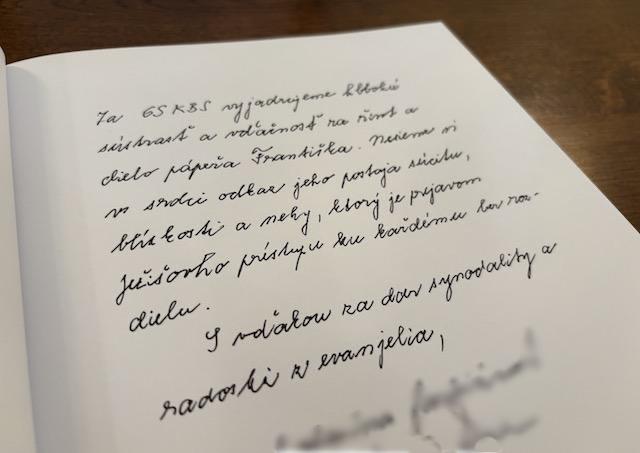 Za GS KBS vyjadrujeme hlbokú
sústrasť a vďačnosť za život a
dielo pápeža Františka. Nesieme si
v srdci odkaz jeho postoja súcitu,
blízkosti a nehy, ktorý je prejavom
Ježišovho prístupu ku každému bez roz-
dielu.
S vďakou za dar synodality a
radosti z evanjelia,